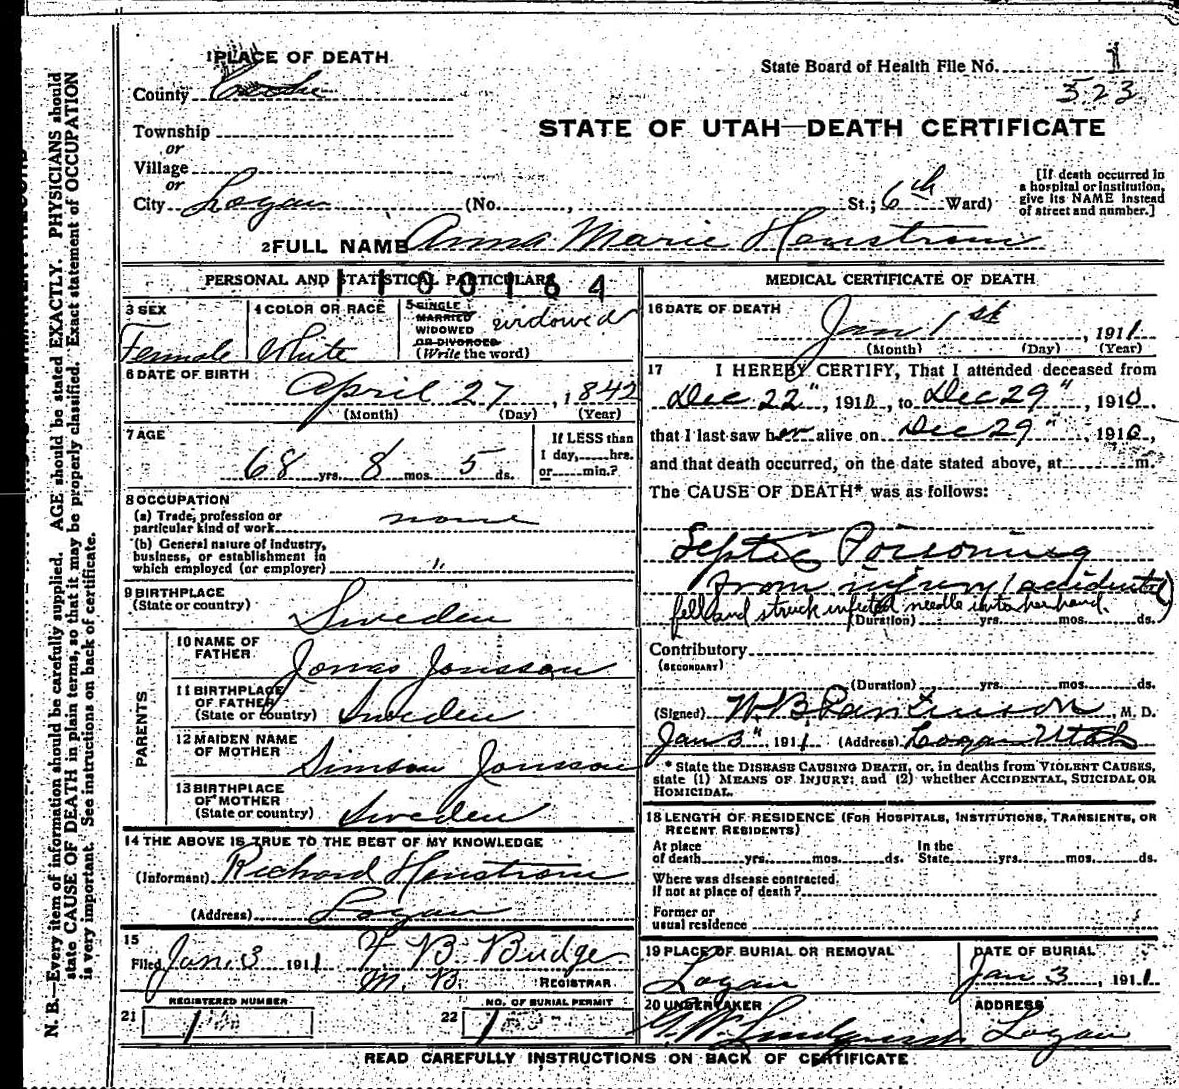 1 PLACE OF DEATH
State Board of Health File No. 1
523
County Cache
STATE OF UTAH—DEATH CERTIFICATE
Township
or
Village
or
City Logan (No. , St.; 6th Ward)
[If death occurred in
a hospital or institution,
give its NAME instead
of street and number.]
2 FULL NAME Anna Marie Henstrom
PERSONAL AND STATISTICAL PARTICULARS
1100164
3 SEX
Female
4 COLOR OR RACE
White
5 SINGLE
MARRIED
WIDOWED
OR DIVORCED
(Write the word)
widowed
6 DATE OF BIRTH
April 27, 1842
(Month) (Day) (Year)
7 AGE
68 yrs. 8 mos. 5 ds.
If LESS than
1 day, hrs.
or min.?
8 OCCUPATION
(a) Trade, profession or
particular kind of work none
(b) General nature of industry,
business, or establishment in
which employed (or employer) "
9 BIRTHPLACE
(State or country)
Sweden
PARENTS
10 NAME OF
FATHER
Jonas Jonsson
11 BIRTHPLACE
OF FATHER
(State or country) Sweden
12 MAIDEN NAME
OF MOTHER
Simson Jonsson
13 BIRTHPLACE
OF MOTHER
(State or country) Sweden
14 THE ABOVE IS TRUE TO THE BEST OF MY KNOWLEDGE
(Informant) Richard Henstrom
(Address) Logan
15
Filed Jan. 3 1911 B. Budge
REGISTRAR
REGISTERED NUMBER
21 1
NO. OF BURIAL PERMIT
22 1
MEDICAL CERTIFICATE OF DEATH
16 DATE OF DEATH
Jan 1st, 1911
(Month) (Day) (Year)
17 I HEREBY CERTIFY, That I attended deceased from
Dec 22", 1910, to Dec 29", 1910
that I last saw her alive on Dec 29", 1910,
and that death occurred, on the date stated above, at m.
The CAUSE OF DEATH* was as follows:
Septic Poisoning
From injury (accidental)
fell and struck infected needle into her hand.
(Duration) yrs. mos. ds.
Contributory
(SECONDARY)
(Duration) yrs. mos. ds.
(Signed) W. B. Parkinson, M. D.
Jan 3" 1911 (Address) Logan Utah
* State the DISEASE CAUSING DEATH, or, in deaths from VIOLENT CAUSES,
state (1) MEANS OF INJURY; and (2) whether ACCIDENTAL, SUICIDAL OR
HOMICIDAL.
18 LENGTH OF RESIDENCE (FOR HOSPITALS, INSTITUTIONS, TRANSIENTS, OR
RECENT RESIDENTS)
At place
of death yrs. mos. ds.
In the
State yrs. mos. ds.
Where was disease contracted.
If not at place of death?
Former or
usual residence
19 PLACE OF BURIAL OR REMOVAL
Logan
DATE OF BURIAL
Jan 3, 1911
20 UNDERTAKER
ADDRESS
Logan
READ CAREFULLY INSTRUCTIONS ON BACK OF CERTIFICATE
N. B.—Every item of information should be carefully supplied. AGE should be stated EXACTLY. PHYSICIANS should
state CAUSE OF DEATH in plain terms, so that it may be properly classified. Exact statement of OCCUPATION
is very important. See instructions on back of certificate.